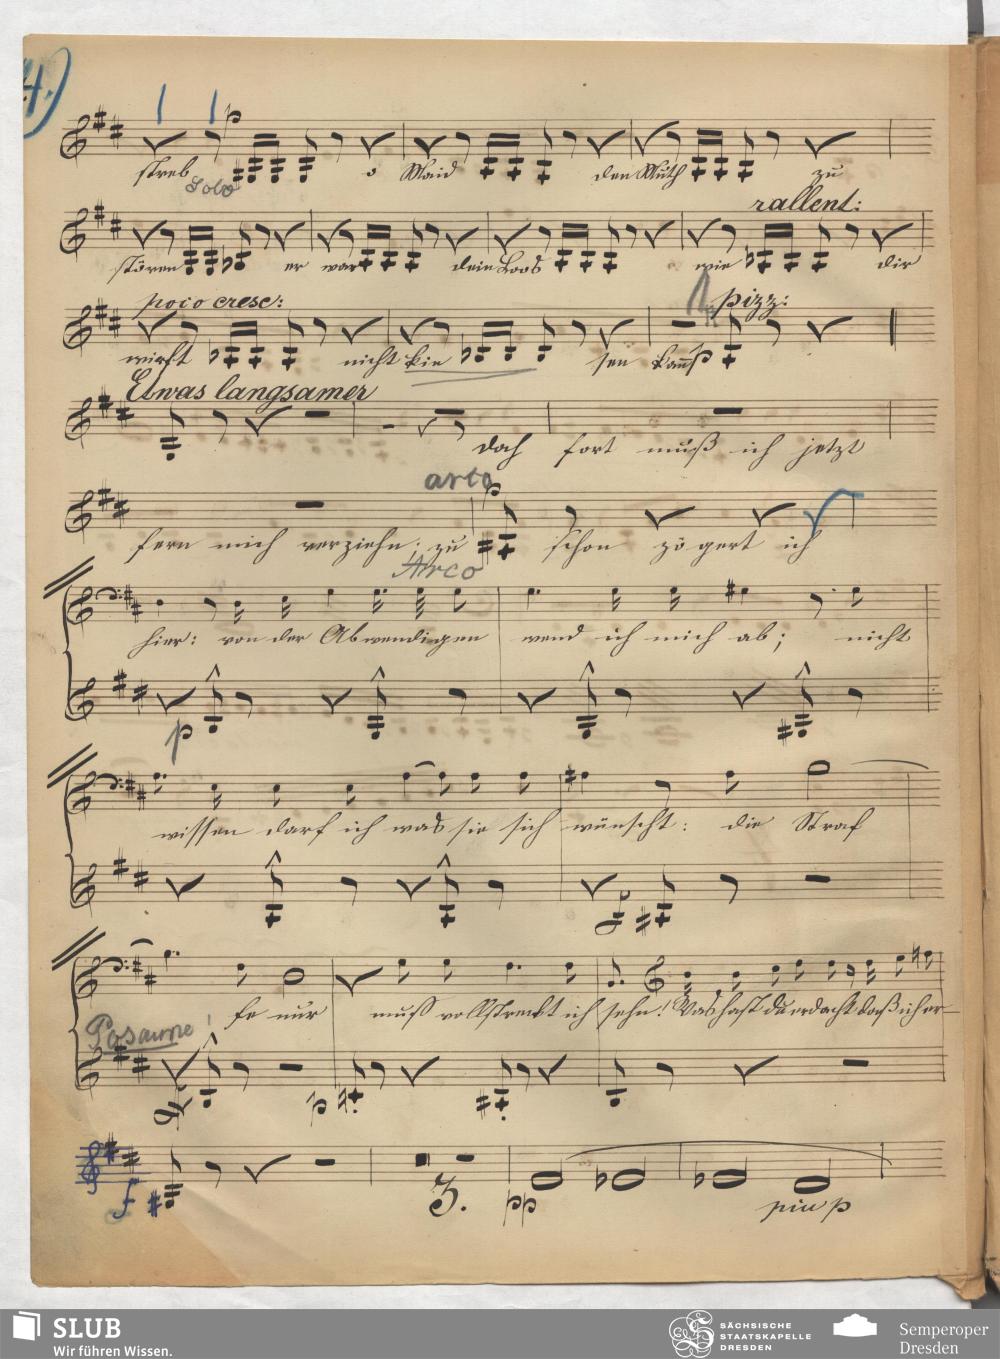 4.)
streb o Maid den Muth zu
Solo
rallent:
stören er war dein Loos wie dir
poco cresc: pizz:
wirft nicht kie sen kannst
Etwas langsamer
doch fort muß ich jetzt
arco
fern mich verziehn; zu schon zögert ich
Arco
hier: von der Abwendigen wend ich mich ab; nicht
p
wissen darf ich was sie sich wünscht: die Straf
fe nur muss vollstreckt ich sehn! Was hast du erdacht daß ich er
Posaune
p
f 3. pp piu p
SLUB
Wir führen Wissen.
SÄCHSISCHE
STAATSKAPELLE
DRESDEN
Semperoper
Dresden